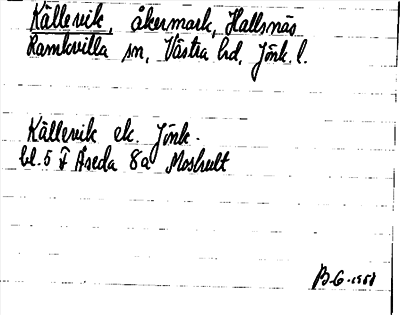 Källevik, åkermark, Hallsnäs
Ramkvilla sn, Västra hd, Jönk. l.
Källevik ek. Jönk.
bl. 5 F Åseda 8a Moshult
B.G. 1958